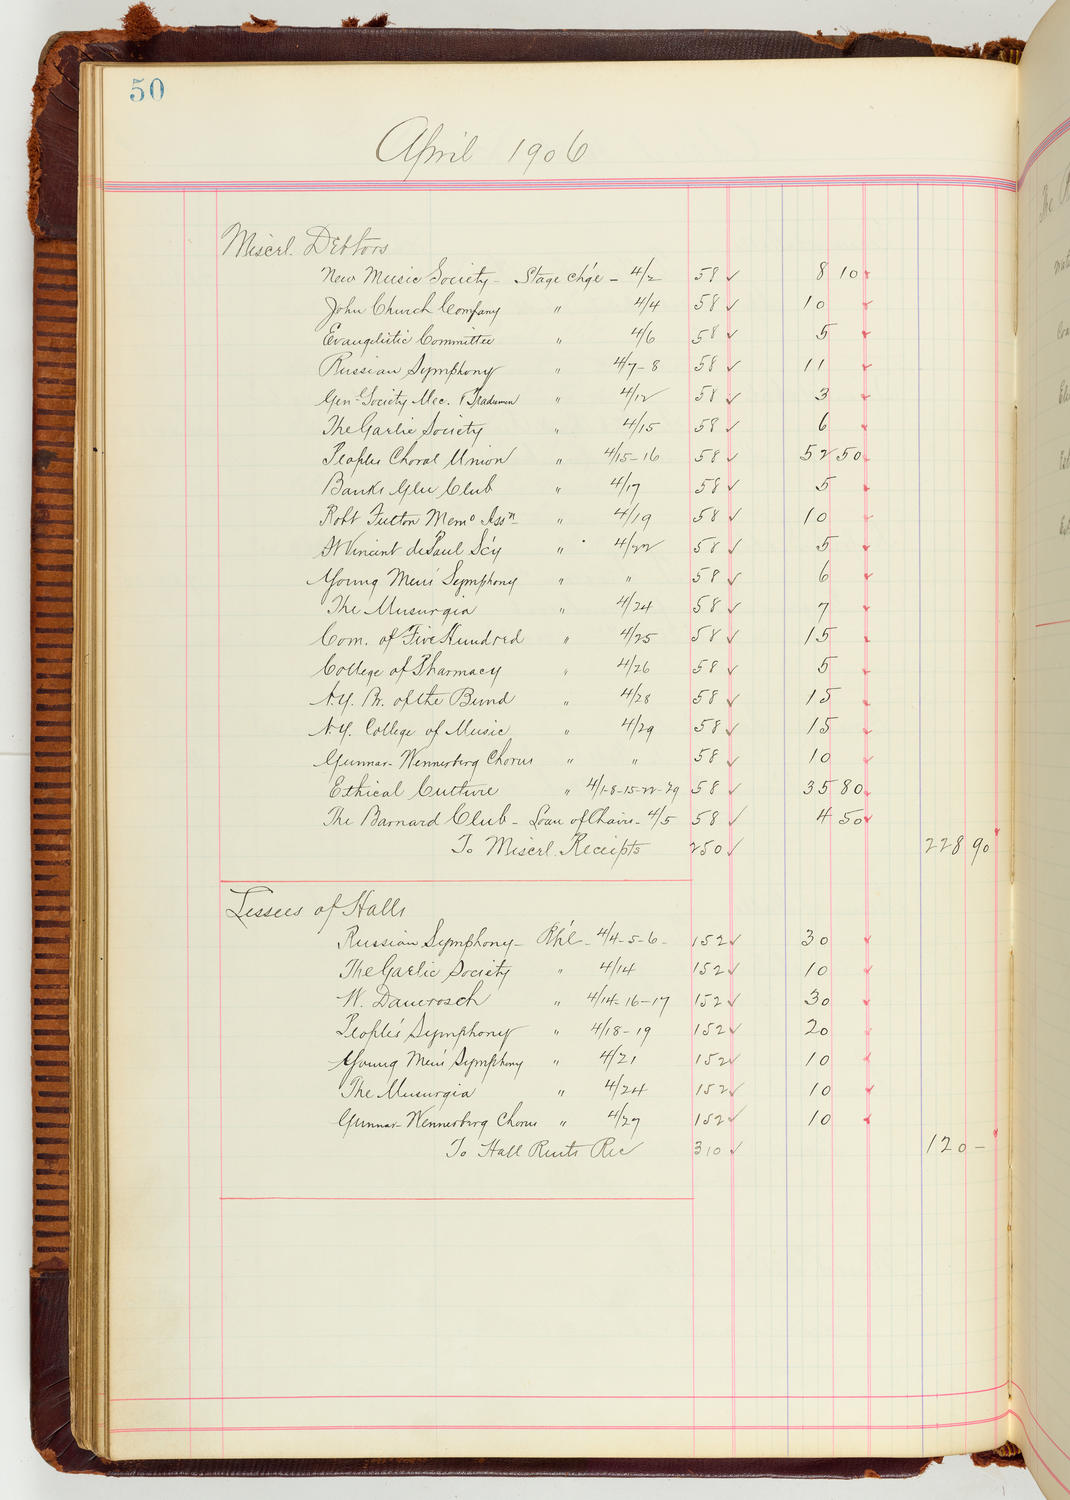 50
April 1906
Miscel. Debtors
New Music Society - Stage Ch'ge - 4/2 58 ✓ 8 10
John Church Company " 4/4 58 ✓ 10
Evangelistic Committee " 4/6 58 ✓ 5
Russian Symphony " 4/7-8 58 ✓ 11
Gen'l Society Mec. & Tradesmen " 4/12 58 ✓ 3
The Gaelic Society " 4/15 58 ✓ 6
Peoples Choral Union " 4/15-16 58 ✓ 52 50
Banks Glee Club " 4/17 58 ✓ 5
Robt Fulton Mem'o Ass'n " 4/19 58 ✓ 10
St Vincent de Paul Sc'y " 4/22 58 ✓ 5
Young Men's Symphony " " 58 ✓ 6
The Musurgia " 4/24 58 ✓ 7
Com. of Five Hundred " 4/25 58 ✓ 15
College of Pharmacy " 4/26 58 ✓ 5
N.Y. Br. of the Bund " 4/28 58 ✓ 15
N.Y. College of Music " 4/29 58 ✓ 15
Gunnar-Wennerberg Chorus " " 58 ✓ 10
Ethical Culture " 4/1-8-15-22-29 58 ✓ 35 80
The Barnard Club - Loan of Chairs - 4/5 58 ✓ 4 50
To Miscel. Receipts 250 ✓ 228 90
Lessees of Halls
Russian Symphony - Rh'l - 4/4-5-6 - 152 ✓ 30
The Gaelic Society " 4/14 152 ✓ 10
W. Damrosch " 4/14-16-17 152 ✓ 30
People's Symphony " 4/18-19 152 ✓ 20
Young Men's Symphony " 4/21 152 ✓ 10
The Musurgia " 4/24 152 ✓ 10
Gunnar-Wennerberg Chorus " 4/29 152 ✓ 10
To Hall Rents Rec 310 ✓ 120 -